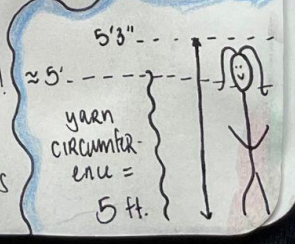 5'3"
≈5'
yarn
circumfer-
ence =
5 ft.